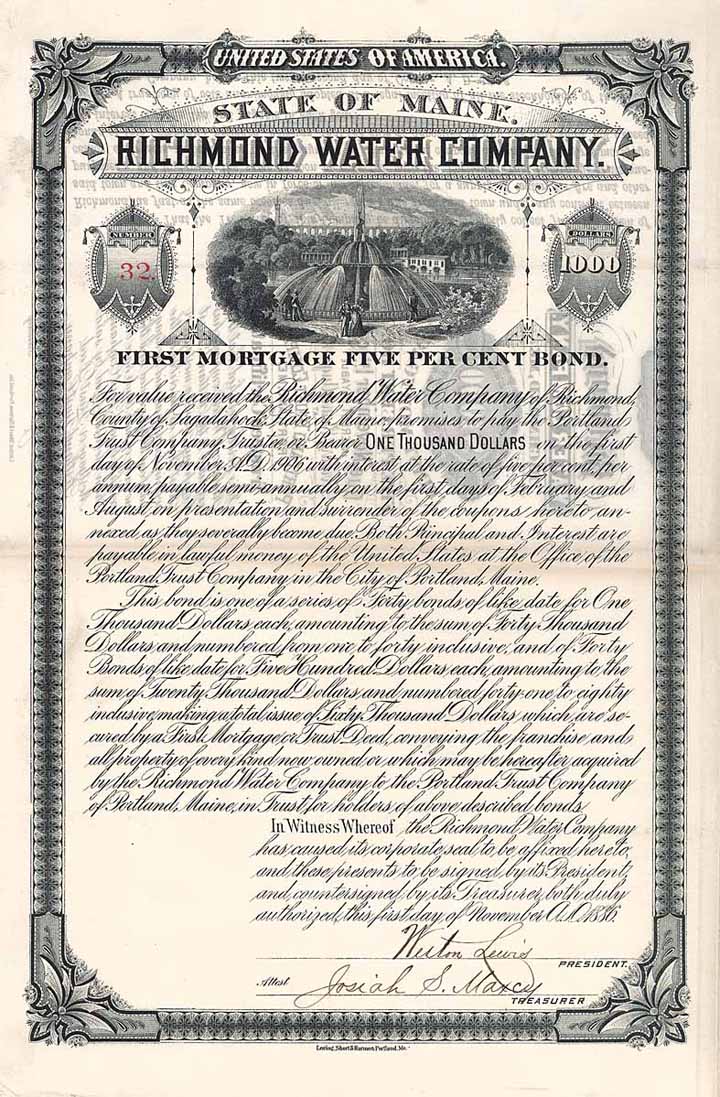 UNITED STATES OF AMERICA.
STATE OF MAINE.
RICHMOND WATER COMPANY.
NUMBER
32.
DOLLARS
1000
FIRST MORTGAGE FIVE PER CENT BOND.
For value received the Richmond Water Company of Richmond,
County of Sagadahock, State of Maine promises to pay the Portland
Trust Company, Trustee or Bearer ONE THOUSAND DOLLARS on the first
day of November, A.D. 1906 with interest at the rate of five per cent, per
annum, payable semi-annually on the first days of February and
August on presentation and surrender of the coupons hereto an-
nexed as they severally become due. Both Principal and Interest are
payable in lawful money of the United States at the Office of the
Portland Trust Company in the City of Portland, Maine.
This bond is one of a series of Forty bonds of like date for One
Thousand Dollars each, amounting to the sum of Forty Thousand
Dollars and numbered from one to forty inclusive, and of Forty
Bonds of like date for Five Hundred Dollars each, amounting to the
sum of Twenty Thousand Dollars and numbered forty-one to eighty
inclusive, making a total issue of Sixty Thousand Dollars, which are se-
cured by a First Mortgage, or Trust Deed, conveying the franchise and
all property of every kind now owned or which may be hereafter acquired
by the Richmond Water Company to the Portland Trust Company
of Portland, Maine, in Trust, for holders of above described bonds.
In Witness Whereof the Richmond Water Company
has caused its corporate seal to be affixed hereto,
and these presents to be signed by its President,
and countersigned by its Treasurer, both duly
authorized, this first day of November A.D. 1886.
Weston Lewis
PRESIDENT.
Attest
Josiah S. Maxcy
TREASURER
Loring, Short & Harmon, Portland, Me.